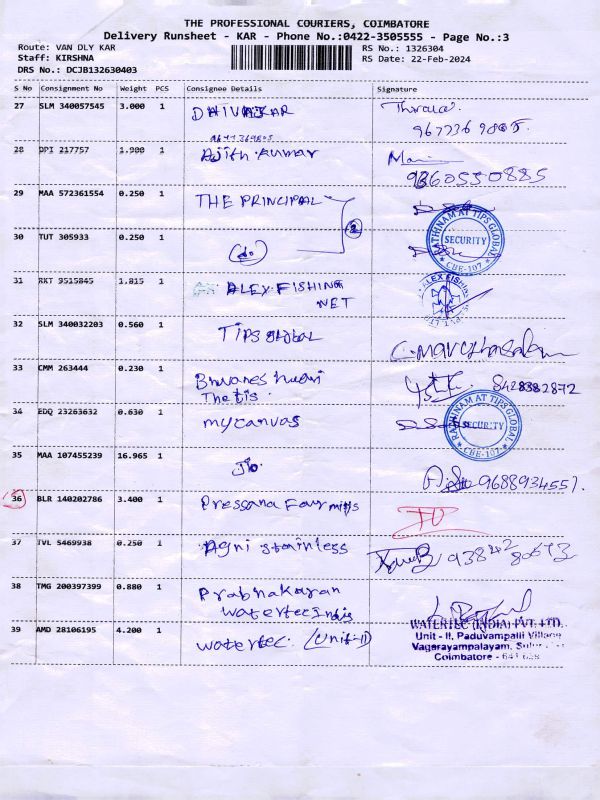 THE PROFESSIONAL COURIERS, COIMBATORE
Delivery Runsheet - KAR - Phone No.:0422-3505555 - Page No.:3
Route: VAN DLY KAR
Staff: KIRSHNA
DRS No.: DCJB132630403
RS No.: 1326304
RS Date: 22-Feb-2024
S No Consignment No Weight PCS Consignee Details Signature
27 SLM 340057545 3.000 1 DHIVAKAR
28 DPI 217757 1.900 1 Ajith kumar
9360550885
29 MAA 572361554 0.250 1 THE PRINCIPAL
2
30 TUT 305933 0.250 1 (do)
RATHINAM AT TIPS GLOBAL
SECURITY
CBE-107
31 RKT 9515845 1.815 1 ALEX FISHING
NET
32 SLM 340032203 0.560 1 TIPS GLOBAL
33 CMM 263444 0.230 1 8428382872
34 EDQ 23263632 0.630 1 mycanvas
RATHINAM AT TIPS GLOBAL
SECURITY
CBE-107
35 MAA 107455239 16.965 1 9688934551
36 BLR 140202786 3.400 1
37 TVL 5469938 0.250 1 Agni stainless
38 TMG 200397399 0.880 1 Prabhakaran
39 AMD 28106195 4.200 1 watertec (Unit-II)
WATERTEC (INDIA) PVT. LTD.
Unit - II, Paduvampalli Village
Vagarayampalayam,
Coimbatore -